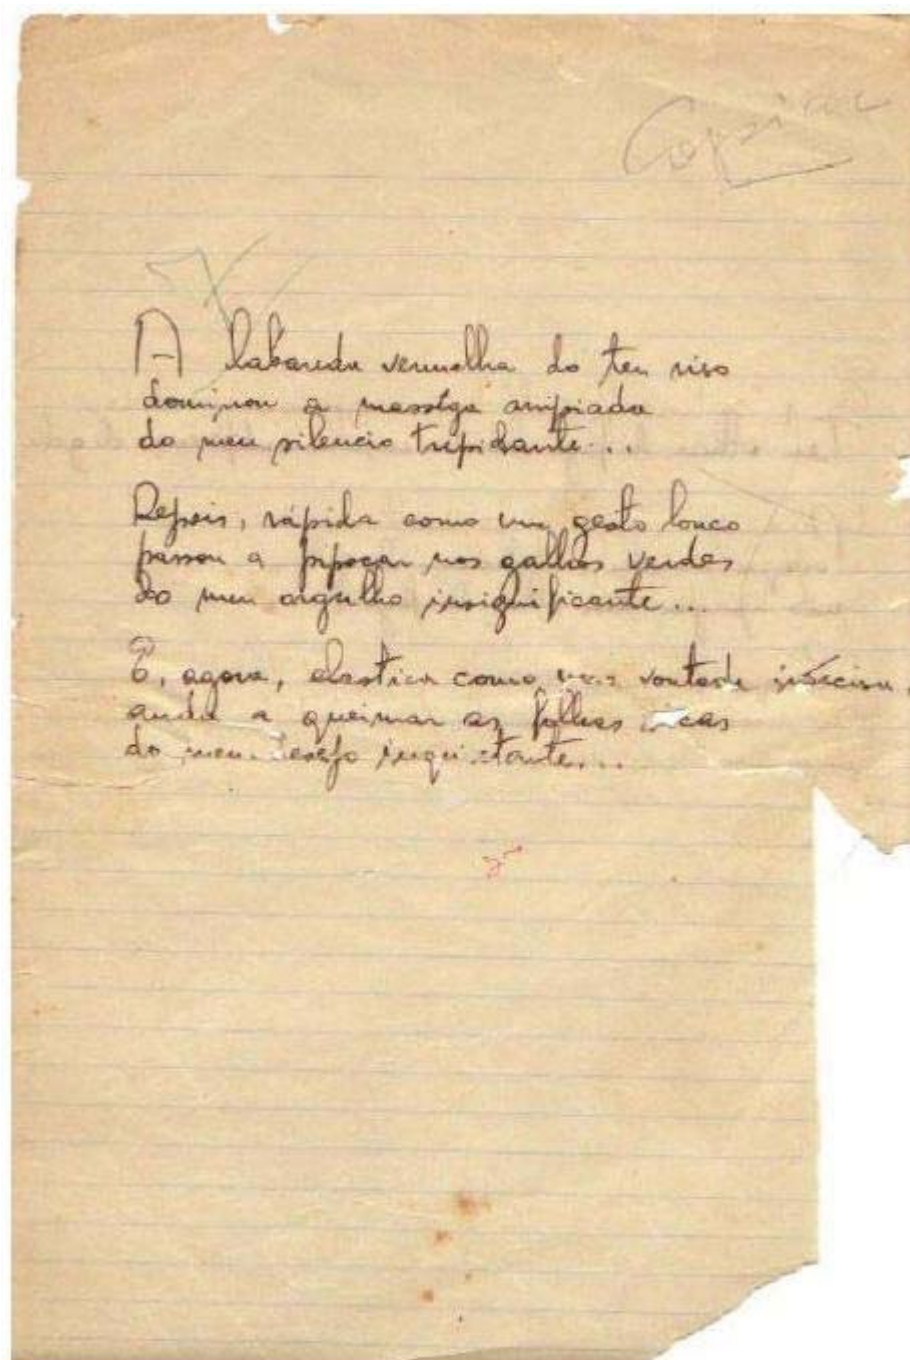 Copiar
A labareda vermelha do teu riso
dominou a massêga arripiada
do meu silencio trepidante...
Depois, rápida como um gesto louco
passou a pipocar nos galhos verdes
do meu orgulho insignificante...
E, agora, elastica como uma vontade indecisa,
anda a queimar as folhas secas
do meu desejo inquietante...